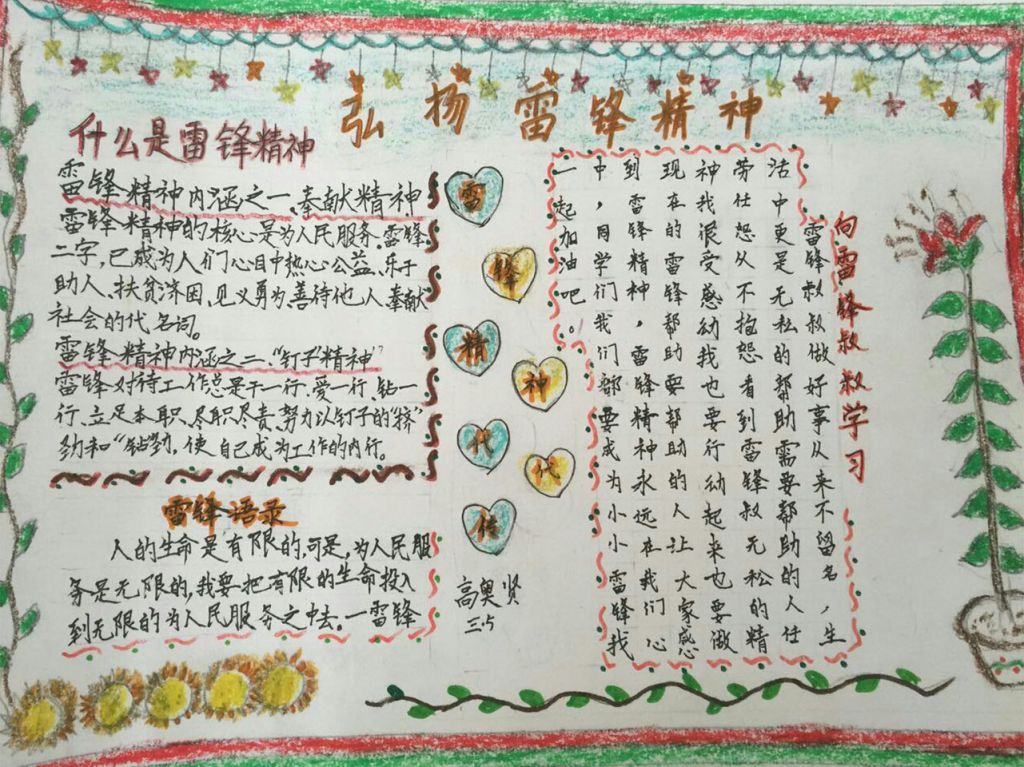 弘扬雷锋精神
什么是雷锋精神
雷锋精神内涵之一、奉献精神
雷锋精神的核心是为人民服务.雷锋
二字,已成为人们心目中热心公益、乐于
助人、扶贫济困、见义勇为、善待他人、奉献
社会的代名词。
雷锋精神内涵之二:“钉子精神”
雷锋对待工作总是干一行.爱一行、钻一
行.立足本职、尽职尽责.努力以钉子的“挤”
劲和“钻”劲,使自己成为工作的内行。
雷锋语录
人的生命是有限的,可是,为人民服
务是无限的,我要把有限的生命投入
到无限的为人民服务之中去。一雷锋
雷
锋
精
神
代
代
传
高奥贤
三.5
向雷锋叔叔学习
雷锋叔叔做好事从来不留名,生
活中更是无私的帮助需要帮助的人任
劳任怨从不抱怨看到雷锋叔无私的精
神我很受感动我也要行动起来也要做
现在的雷锋帮助要帮助的人让大家感
到雷锋精神,雷锋精神永远在我们心
中,同学们我们都要成为小小雷锋我
一起加油吧。